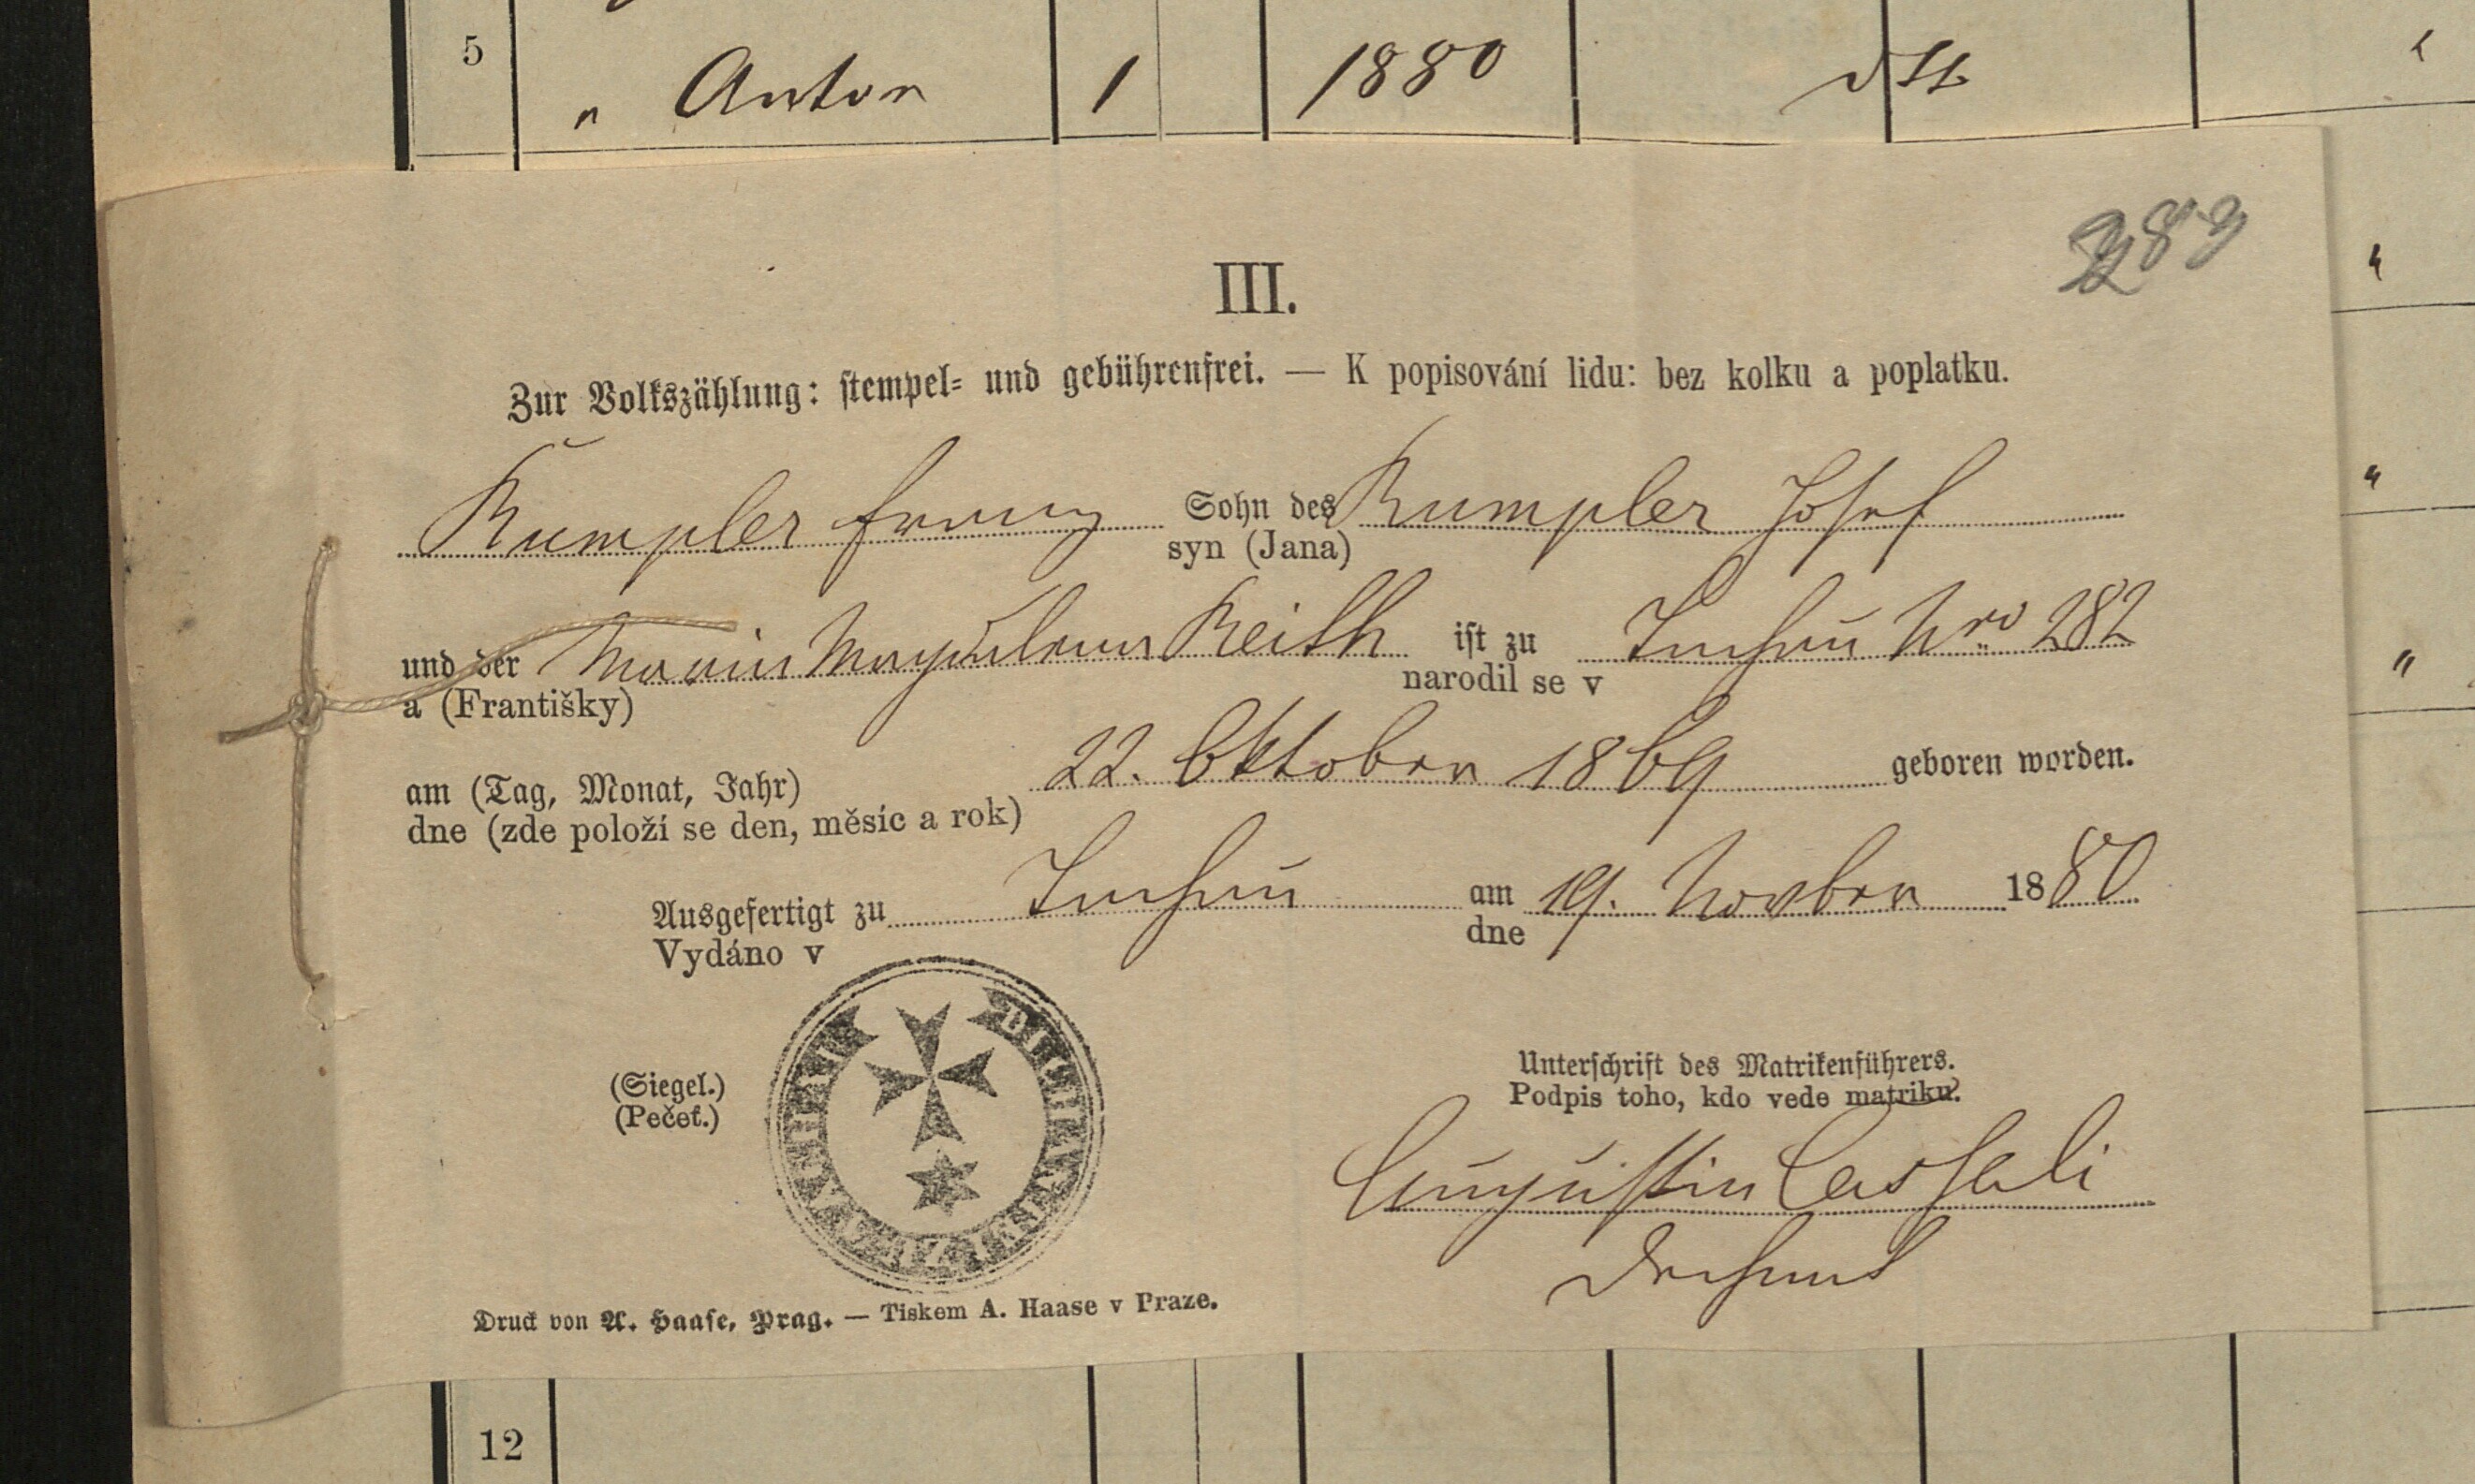 5 " Anton 1 1880 dtt "
283
III.
Zur Volkszählung: stempel= und gebührenfrei. — K popisování lidu: bez kolku a poplatku.
Rumpler Franz Sohn des Rumpler Josef
syn (Jana)
und der Maria Magdalena Reith ist zu Tuschau Nro 282
a (Františky) narodil se v
am (Tag, Monat, Jahr) 22. Oktober 1869 geboren worden.
dne (zde položí se den, měsíc a rok)
Ausgefertigt zu am 19. Novber 1880
Vydáno v dne
(Siegel.)
(Pečeť.)
Unterschrift des Matrikenführers.
Podpis toho, kdo vede matriku.
Augustin Casseli
Dechant
Druck von A. Haase, Prag. — Tiskem A. Haase v Praze.
12